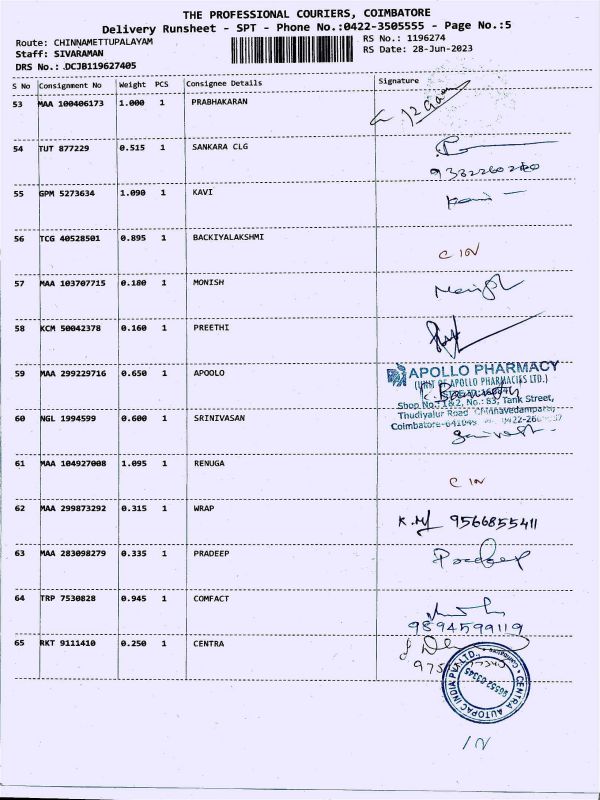 THE PROFESSIONAL COURIERS, COIMBATORE
Delivery Runsheet - SPT - Phone No.:0422-3505555 - Page No.:5
Route: CHINNAMETTUPALAYAM
RS No.: 1196274
Staff: SIVARAMAN
RS Date: 28-Jun-2023
DRS No.: .DCJB119627405
S No Consignment No Weight PCS Consignee Details Signature
53 MAA 100406173 1.000 1 PRABHAKARAN
54 TUT 877229 0.515 1 SANKARA CLG
55 GPM 5273634 1.090 1 KAVI
56 TCG 40528501 0.895 1 BACKIYALAKSHMI
57 MAA 103707715 0.180 1 MONISH
58 KCM 50042378 0.160 1 PREETHI
59 MAA 299229716 0.650 1 APOOLO
APOLLO PHARMACY
(UNIT OF APOLLO PHARMACIES LTD.)
Shop No.: 1&2, No.: 53, Tank Street,
Thudiyalur Road
Coimbatore-641049
60 NGL 1994599 0.600 1 SRINIVASAN
61 MAA 104927008 1.095 1 RENUGA
62 MAA 299873292 0.315 1 WRAP 9566855411
63 MAA 283098279 0.335 1 PRADEEP Pradeep
64 TRP 7530828 0.945 1 COMFACT
9894599119
65 RKT 9111410 0.250 1 CENTRA
CENTRA AUTOPAC INDIA PVT LTD.